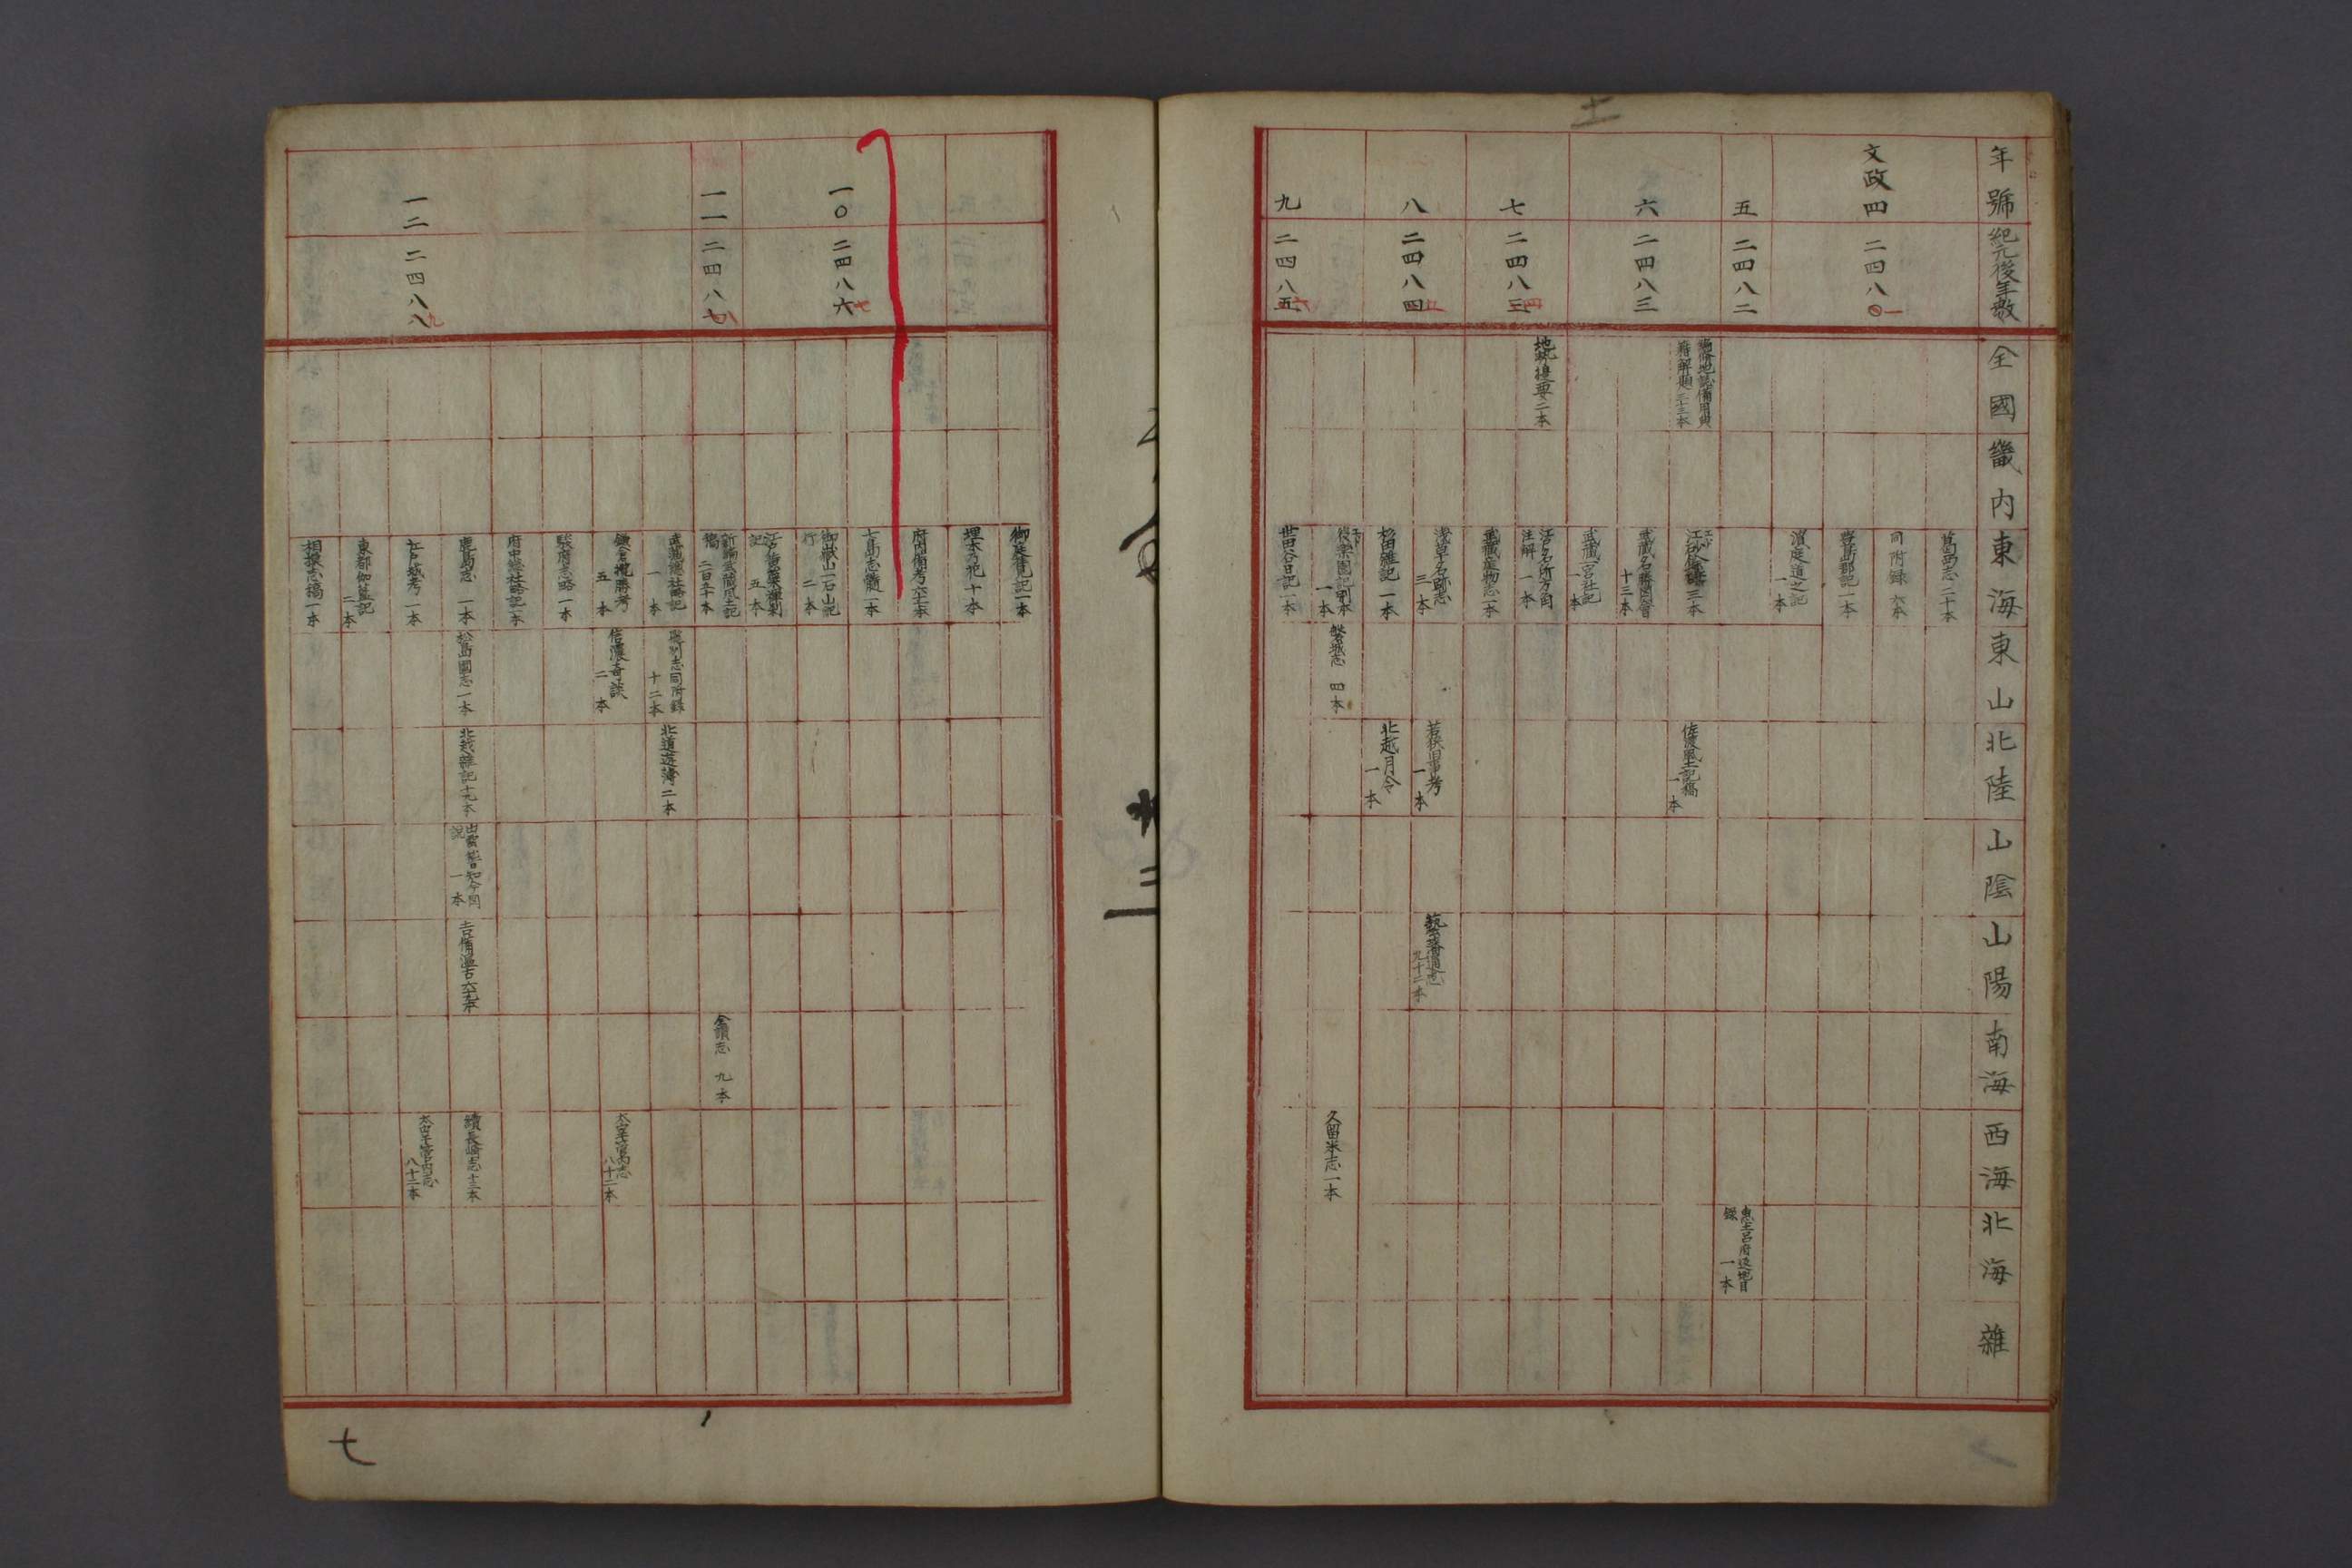 年號
紀元後年数
全國
畿内
東海
東山
北陸
山陰
山陽
南海
西海
北海
雜
文政四
二四八〇一
葛西志二十本
同附録六本
濱庭道之記一本
五
二四八二
一本
六
二四八三
三本
佐渡風土記稿一本
武藏名勝図會十三本
武藏一宮社記一本
七
二四八三四
地勢提要二本
江戸名所方角注解一本
武藏産物志一本
八
二四八四五
淺草名跡志三本
若狹旧事考一本
藝藩通志九十二本
杉田雜記一本
北越月令一本
後樂園記別本一本
磐城志四本
久留米志一本
九
二四八五六
世田谷日記一本
御覽記一本
埋木乃花十本
府内備考六十一本
七島志一本
一〇
二四八六七
御嶽山一石山記行二本
五本
一一
二四八七八
新編武藏風土記稿二百五十本
金讃志九本
武藏國社略記一本
同附録十二本
北道遊簿二本
鎌倉攬勝考五本
信濃奇談二本
太宰管内志八十二本
駿府志略一本
府中惣社略記一本
一二
二四八八九
鹿島志一本
松島圖志一本
北越雜記十九本
吉備温古六十九本
續長崎志十三本
江戸城考一本
太宰管内志八十二本
東都伽藍記二本
相摸志稿一本
七